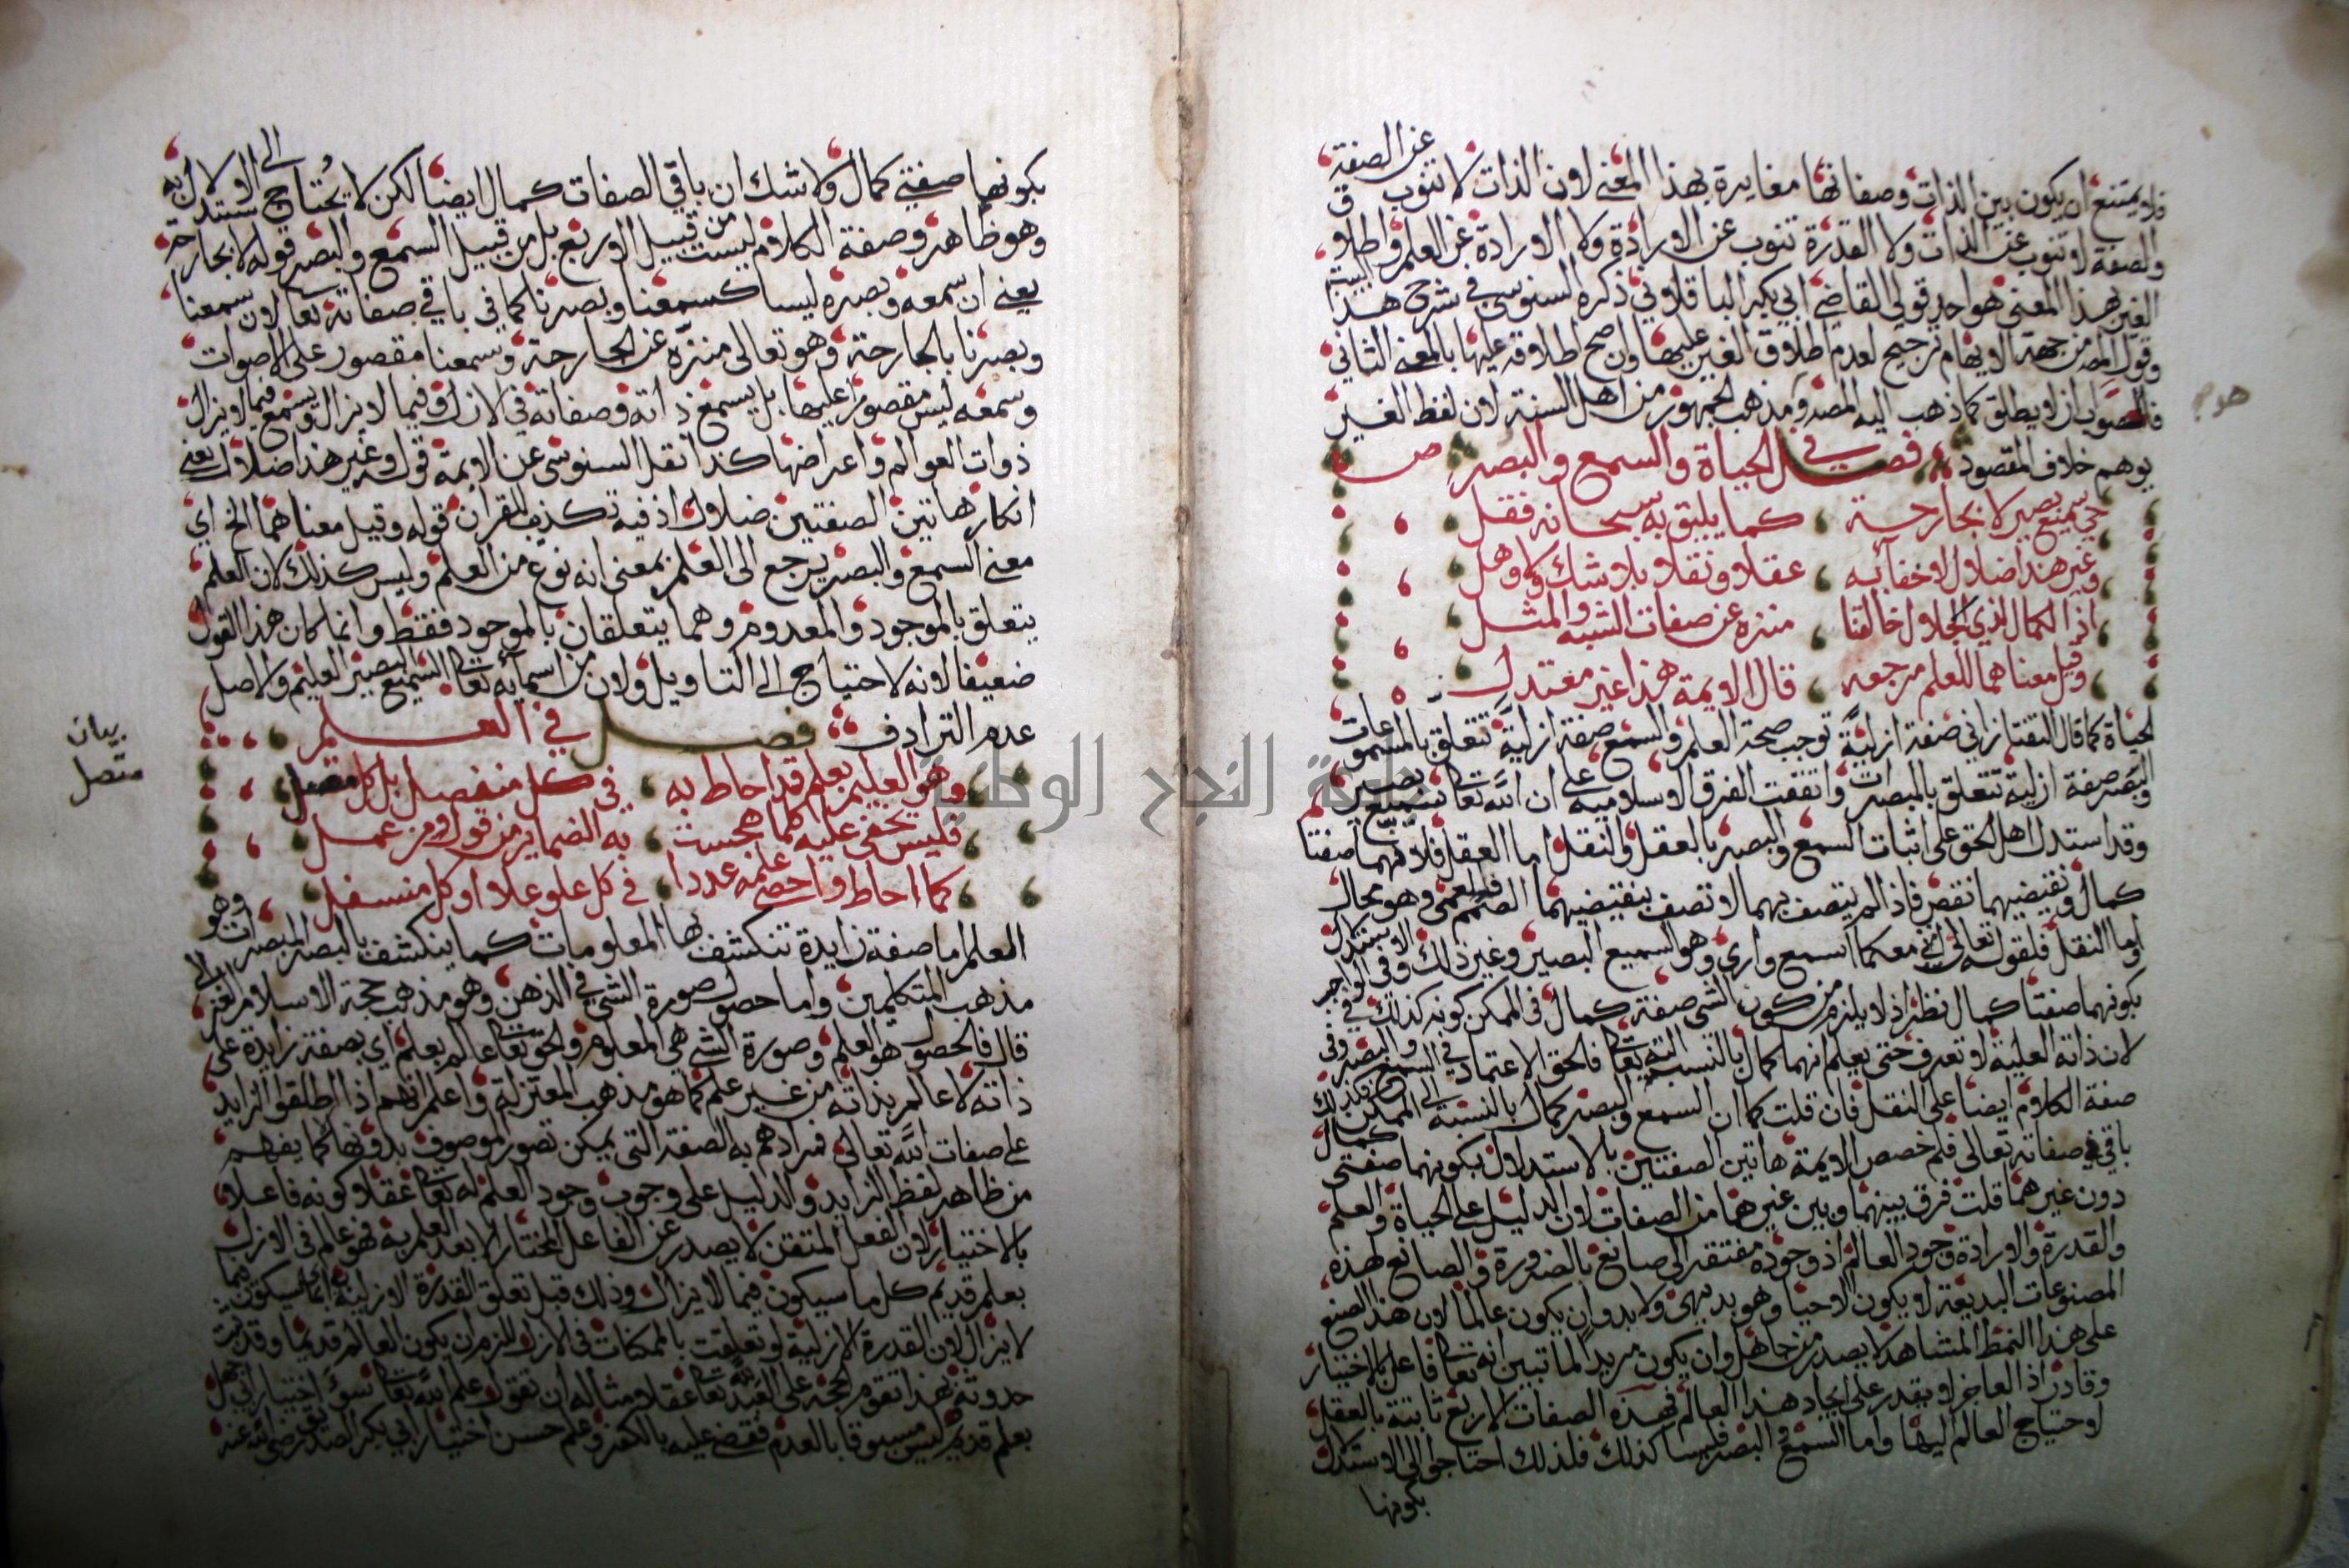 فلا يمتنع ان يكون بين الذات وصفاتها مغايرة بهذا المعنى لان الذات لا تنوب عن الصفة
والصفة لا تنوب عن الذات ولا القدرة تنوب عن الارادة ولا الارادة عن العلم واطلاق
الغير بهذا المعنى هو احد قولي القاضي ابي بكر الباقلاني ذكره السنوسي في شرح هذا البيت
وقول المص من جهة الايهام ترجيح لعدم اطلاق الغير عليها وان صح اطلاقه عليها بالمعنى الثاني
فالصواب ان لا يطلق كما ذهب اليه المص ومذهب الجمهور من اهل السنة لان لفظ الغير
يوهم خلاف المقصود فصل في الحياة والسمع والبصر ص
حي سميع بصير لا بجارحة كما يليق به سبحانه فقل
وغير هذا ضلال لا خفاء به عقلا ونقلا بلا شك ولا وهل
اذ الكمال لذي الجلال خالقنا منزه عن صفات الشبه والمثل
وقيل معناهما للعلم مرجعه قال الايمة هذا غير معتدل
الحياة كما قال التفتازاني صفة ازلية توجب صحة العلم والسمع صفة ازلية تتعلق بالمسموعات
والبصر صفة ازلية تتعلق بالمبصرات واتفقت الفرق الاسلامية على ان الله تعا سميع بصير
وقد استدل اهل الحق على اثبات السمع والبصر بالعقل والنقل اما العقل فلانهما صفتا
كمال ونقيضيهما نقص فاذا لم يتصف بهما لاتصف بنقيضيهما الصمم والعمى وهو محال
واما النقل فلقوله تعالى انني معكما اسمع وارى وهو السميع البصير وغير ذلك وفي الاستدلال
بكونهما صفتا كمال نظر اذ لا يلزم من كون الشي صفة كمال في الممكن كونه كذلك في الواجب
لان ذاته العلية لا تعرف حتى يعلم انهما كمال بالنسبة اليه تعا فالحق الاعتماد في السمع والبصر وفي
صفة الكلام ايضا على النقل فان قلت كما ان السمع والبصر كمال بالنسبة الى الممكن فكذلك
باقي صفاته تعالى فلم خصص الايمة هاتين الصفتين بالاستدلال بكونهما صفتي كمال
دون غيرهما قلت فرق بينهما وبين غيرهما من الصفات لان الدليل على الحياة والعلم
والقدرة والارادة وجود العالم اذ وجوده مفتقر الى صانع بالضرورة والصانع لهذه
المصنوعات البديعة لا يكون الا حيا وهو بديهي ولا بد وان يكون عالما لان هذا الصنع
على هذا النمط المشاهد لا يصدر من جاهل وان يكون مريدا لما تبين انه تعا فاعل بالاختيار
وقادرا اذ العاجز لا يقدر على ايجاد هذا العالم فهذه الصفات الاربع ثابتة بالعقل
لاحتياج العالم اليها واما السمع والبصر فليسا كذلك فلذلك احتاجوا الى الاستدلال
بكونها
بكونهما صفتي كمال ولا شك ان باقي الصفات كمال ايضا لكن لا يحتاج الى الاستدلال به
وهو ظاهر وصفة الكلام ليست من قبيل الاربع بل من قبيل السمع والبصر قوله لا بجارحة
يعني ان سمعه وبصره ليسا كسمعنا وبصرنا كما في باقي صفاته تعا لان سمعنا
وبصرنا بالجارحة وهو تعالى منزه عن الجارحة وسمعنا مقصور على الاصوات
وسمعه ليس مقصورا عليها بل يسمع ذاته وصفاته في الازل وفيما لا يزال ويسمع فيما لا يزال
ذوات العوالم واعراضها كذا نقل السنوسي عن الايمة قوله وغير هذا ضلال يعني
انكار هاتين الصفتين ضلال اذ فيه تكذيب القران قوله وقيل معناهما الخ اي
معنى السمع والبصر يرجع الى العلم بمعنى انه نوع من العلم وليس كذلك لان العلم
يتعلق بالموجود والمعدوم وهما يتعلقان بالموجود فقط وانما كان هذا القول
ضعيفا لانه لا احتياج الى التاويل ولان من اسمايه تعا السميع البصير العليم والاصل
عدم الترادف فصل في العلم
وهو العليم بعلم قد احاط به في كل منفصل بل كل متصل
فليس يخفى عليه كلما هجست به الضماير من قول ومن عمل
كما احاط واحصى علمه عددا في كل علو علا او كل منسفل
العلم اما صفة زايدة تنكشف بها المعلومات كما ينكشف بالبصر المبصرات وهو
مذهب المتكلمين واما حصول صورة الشي في الذهن وهو مذهب حجة الاسلام الغزالي
قال فالحصول هو العلم وصورة الشي هي المعلوم والحق تعا عالم بعلم اي بصفة زايدة على
ذاته لا عالم بذاته من غير علم كما هو مذهب المعتزلة واعلم انهم اذا اطلقوا الزايد
على صفات الله تعالى فمرادهم به الصفة التي يمكن تصور الموصوف بدونها كما يفهم
من ظاهر لفظ الزايد والدليل على وجوب وجود العلم له تعا عقلا كونه فاعلا
بالاختيار لان الفعل المتقن لا يصدر عن الفاعل المختار الا بعد العلم به فهو عالم في الازل
بعلم قديم كل ما سيكون فيما لا يزال وذلك قبل تعلق القدرة الازلية بايجاد ما سيكون فيما
لا يزال لان القدرة الازلية لو تعلقت بالممكنات في الازل للزم ان يكون العالم قديما وقد ثبت
حدوثه بهذا تقوم الحجة على العبد لله تعا عقلا ومثاله ان تقول علم الله تعا سوء اختيار ابي جهل
بعلم قديم ليس مسبوقا بالعدم فقضى عليه بالكفر وعلم حسن اختيار ابي بكر الصديق رضي الله عنه
بيان
متصل
جامعة النجاح الوطنية